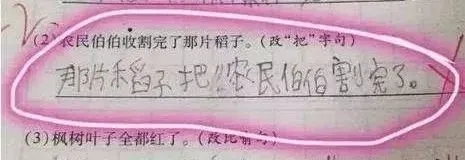 (2)农民伯伯收割完了那片稻子。(改"把"字句)
那片稻子把农民伯伯割完了。
(3)枫树叶子全都红了。(改比喻句)